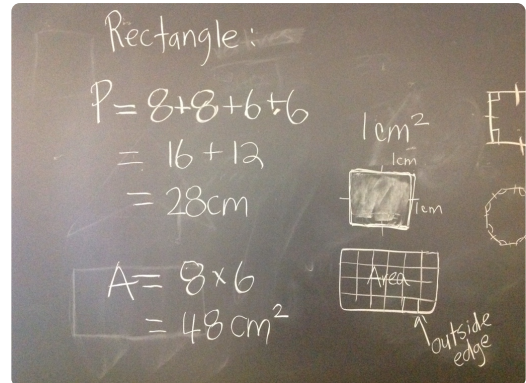 Rectangle:
P = 8+8+6+6
= 16 + 12
= 28cm
A = 8×6
= 48 cm²
1cm²
1cm
1cm
Area
outside
edge